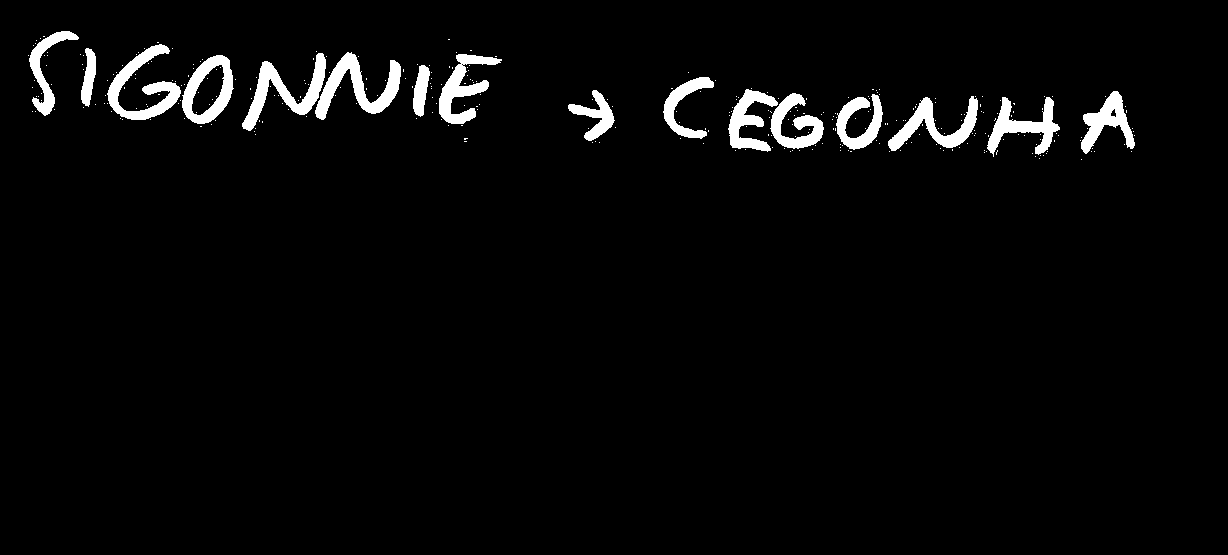 SIGONNIE → CEGONHA